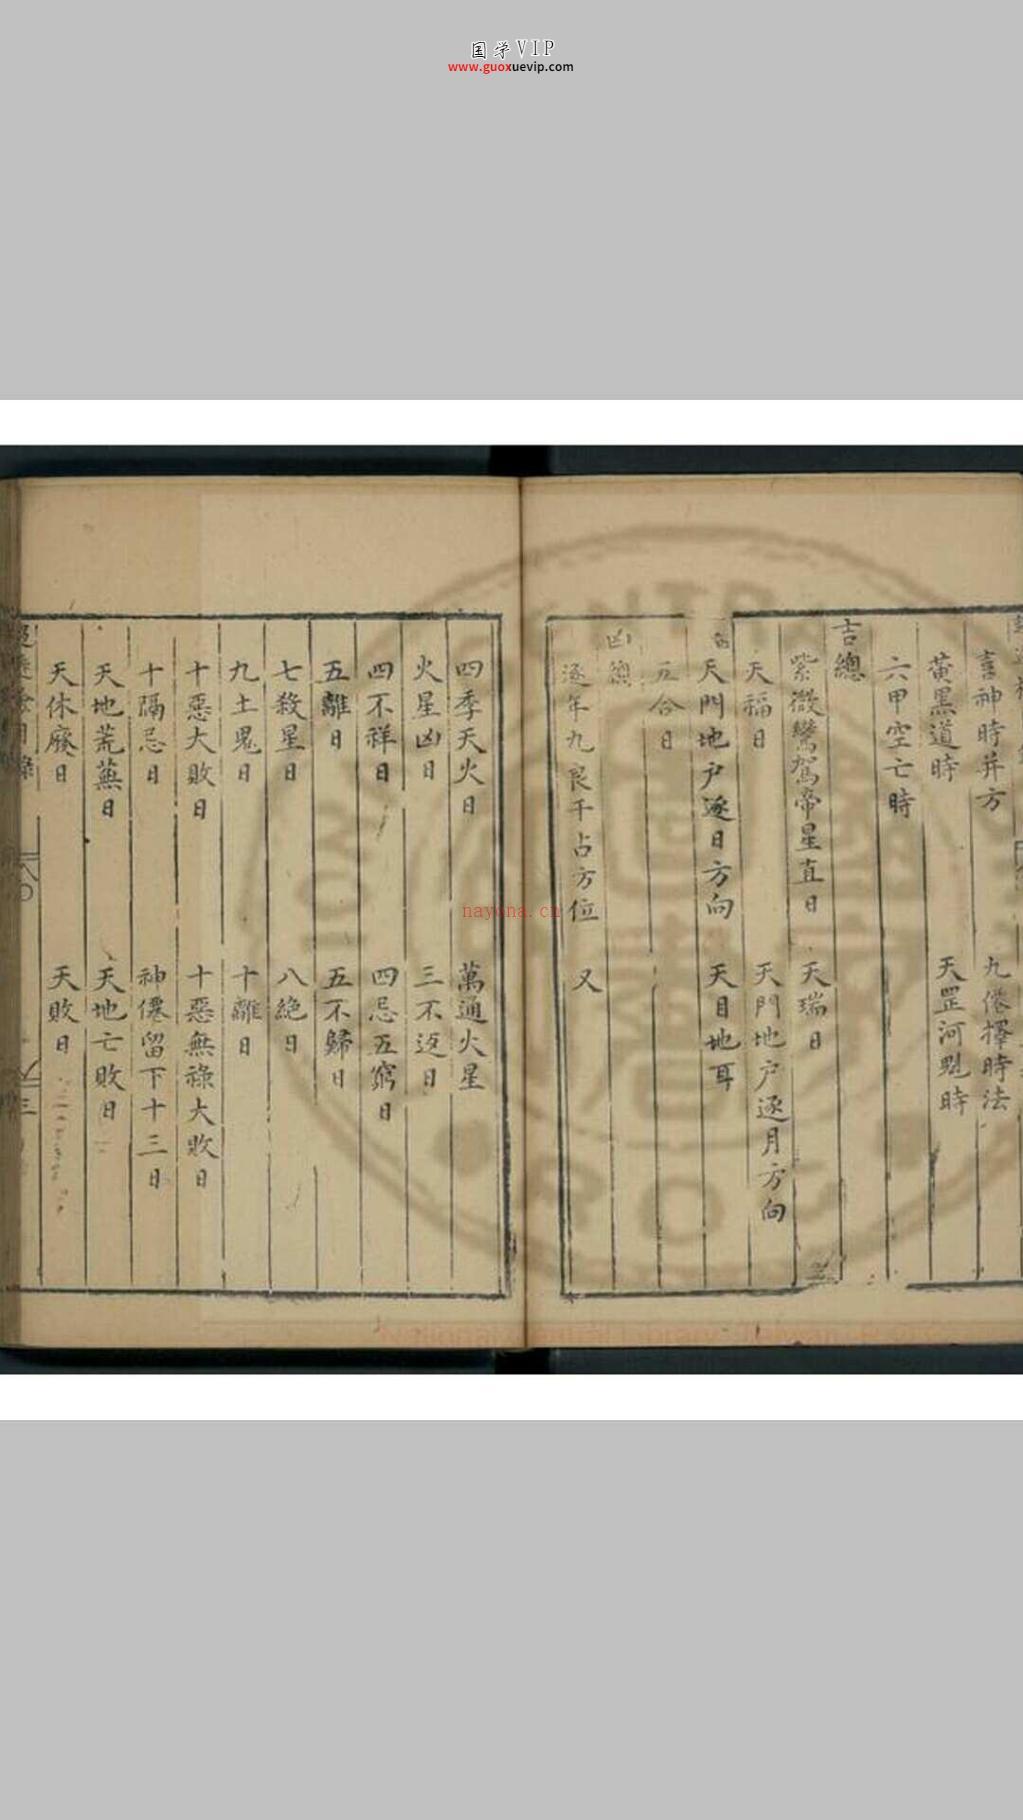 国学VIP
www.guoxuevip.com
喜神時并方 九僊擇時法
黃黑道時 天罡河魁時
六甲空亡時
吉總
紫微鸞駕帝星直日 天瑞日
天福日 天門地户逐月方向
天門地户逐日方向 天目地耳
五合日
凶總
逐年九良干占方位 又
四季天火日 萬通火星
火星凶日 三不返日
四不祥日 四忌五窮日
五離日 五不歸日
七殺星日 八絕日
九土鬼日 十離日
十惡大敗日 十惡無祿大敗日
十隔忌日 神僊留下十三日
天地荒蕪日 天地亡敗日
天休廢日 天敗日
nayona.cn